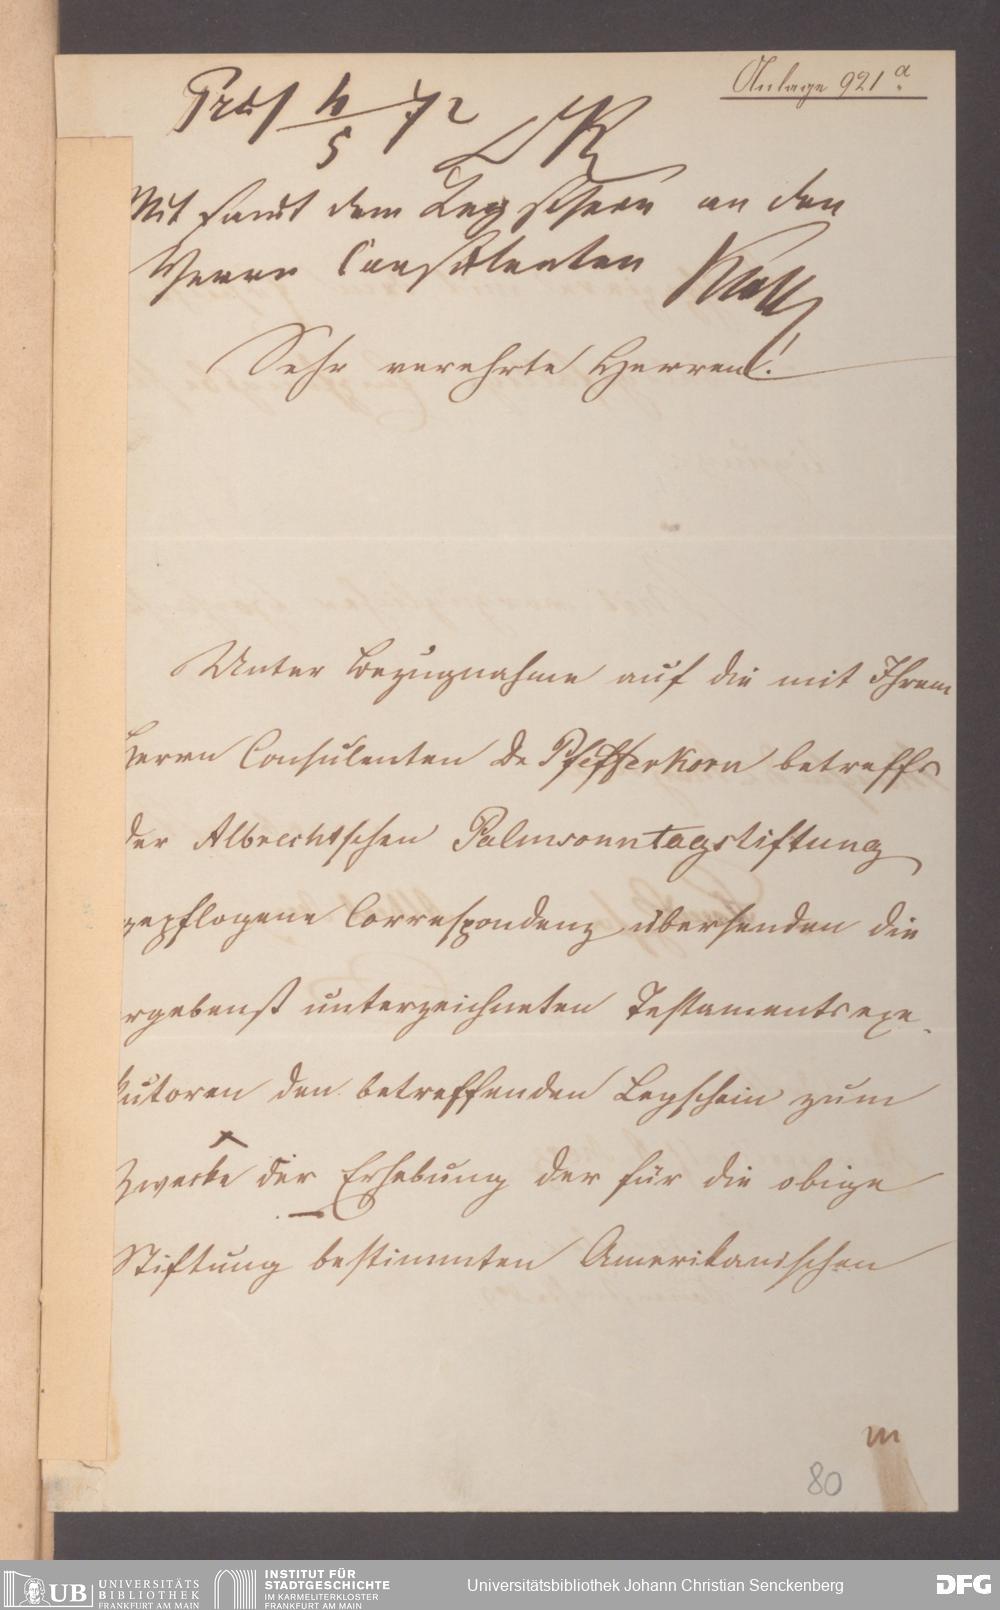 Anlage 921 a.
Präs 4/5 72
Mit samt dem Leg Schein an den
Herrn Consulenten
Sehr verehrte Herren!
Unter Bezugnahme auf die mit Ihrem
Herrn Consulenten Dr Pfefferkorn betreffs
der Albrechtschen Palmsonntagstiftung
gepflogene Correspondenz übersenden die
ergebenst unterzeichneten Testamentsexe-
kutoren den betreffenden Legschein zum
Zwecke der Erhebung der für die obige
Stiftung bestimmten Amerikanischen
80
UB UNIVERSITÄTS
BIBLIOTHEK
FRANKFURT AM MAIN
INSTITUT FÜR
STADTGESCHICHTE
IM KARMELITERKLOSTER
FRANKFURT AM MAIN
Universitätsbibliothek Johann Christian Senckenberg
DFG